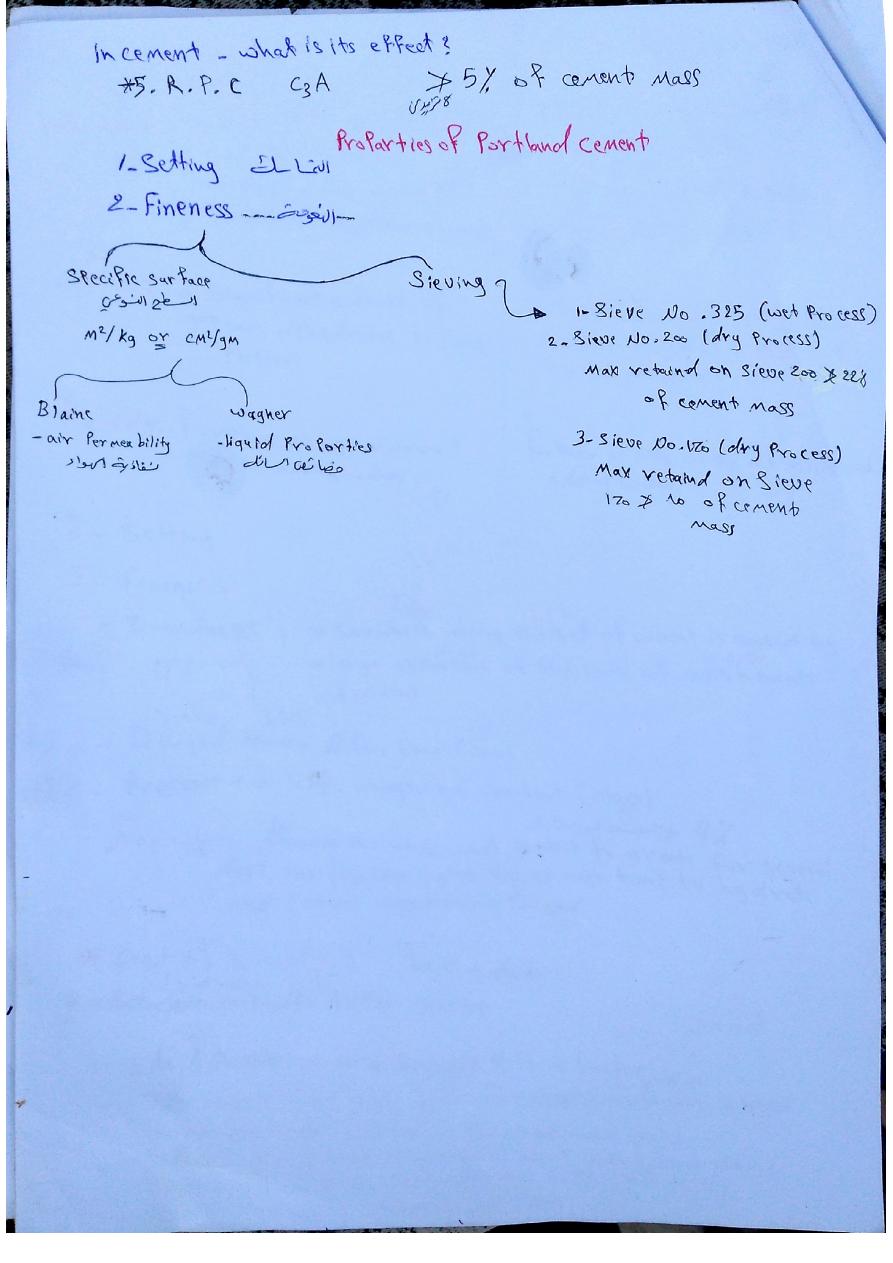 in cement - what is its effect?
*5. R. P. C C3A ≯ 5% of cement mass
لا تزيد
Proparties of Portland cement
1- Setting التماسك
2- Fineness ---- النعومة ---
Specific surface
السطح النوعي
m²/kg or cm²/gm
Blaine
- air Permeability
نفاذية الهواء
wagner
- liquid Proporties
خصائص السائل
Sieving
1- Sieve No .325 (wet Process)
2- Sieve No. 200 (dry Process)
Max retaind on Sieve 200 ≯ 22%
of cement mass
3- Sieve No. 170 (dry Process)
Max retaind on Sieve
170 ≯ 10 of cement
mass